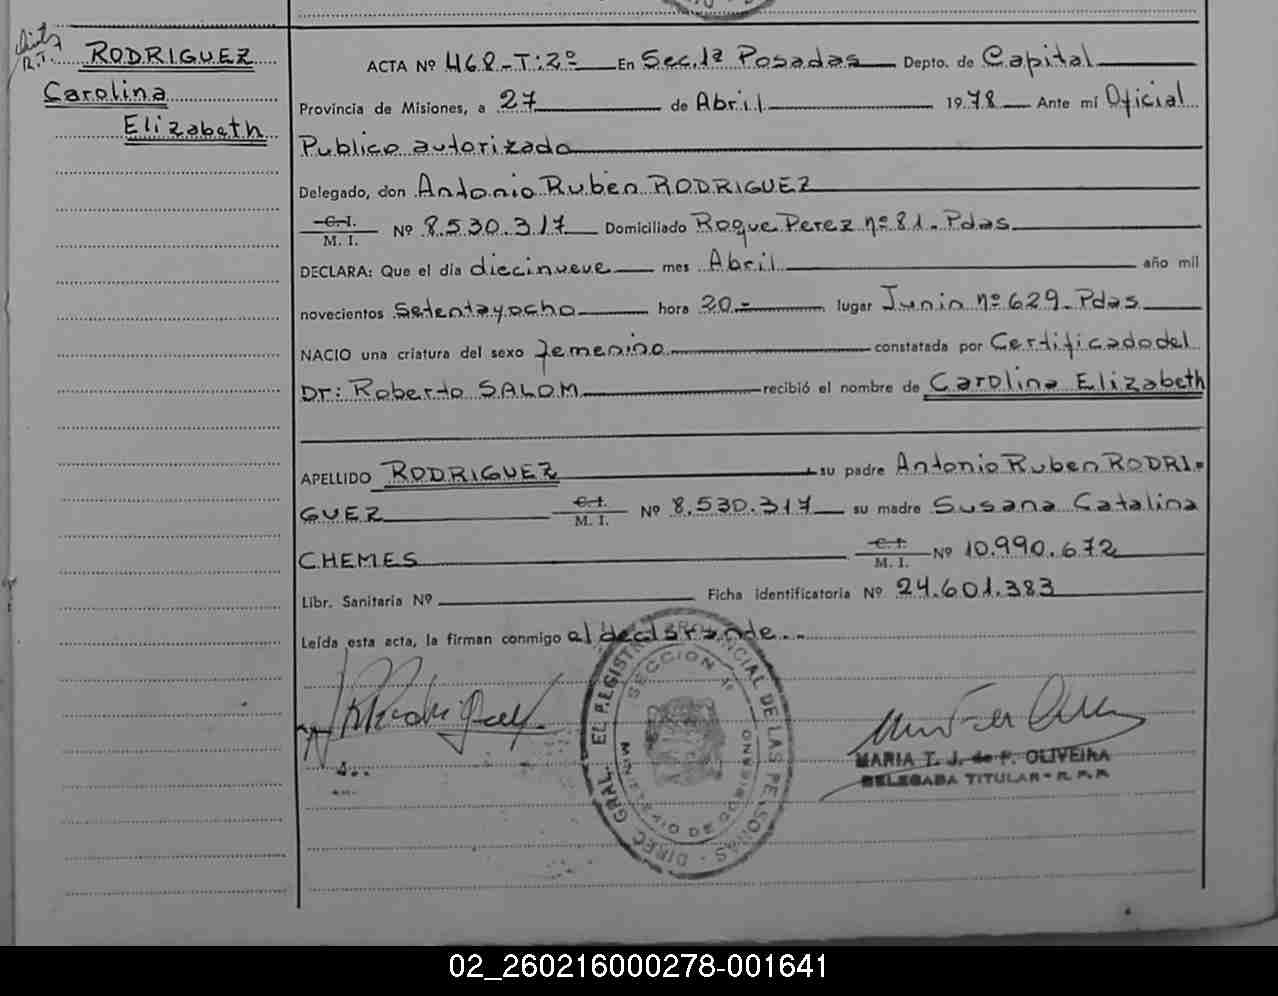 RODRIGUEZ
Carolina
Elizabeth
ACTA Nº 468-T:2º En Sec.1ª Posadas Depto. de Capital
Provincia de Misiones, a 27 de Abril 1978 Ante mí Oficial
Publico autorizado
Delegado, don Antonio Ruben RODRIGUEZ
C.I.
M. I. Nº 8.530.317 Domiciliado Roque Perez nº 81. Pdas
DECLARA: Que el día diecinueve mes Abril año mil
novecientos setentayocho hora 20.- lugar Junin nº 629. Pdas
NACIO una criatura del sexo femenino constatada por Certificado del
Dr: Roberto SALOM recibió el nombre de Carolina Elizabeth
APELLIDO RODRIGUEZ su padre Antonio Ruben RODRI-
GUEZ C.I. M. I. Nº 8.530.317 su madre Susana Catalina
CHEMES C.I. M. I. Nº 10.990.672
Libr. Sanitaria Nº Ficha identificatoria Nº 24.601.383
Leída esta acta, la firman conmigo el declarande..
DIREC. GRAL. DEL REGISTRO PROVINCIAL DE LAS PERSONAS
SECCION 1ª
MINISTERIO DE GOBIERNO
MARIA T. J. de P. OLIVEIRA
DELEGADA TITULAR - R. P. P.
02_260216000278-001641